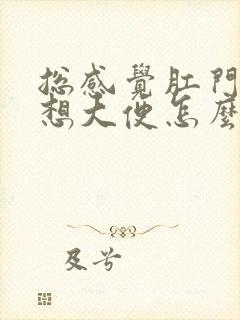 總感覺肛門
想大便怎麼
及兮